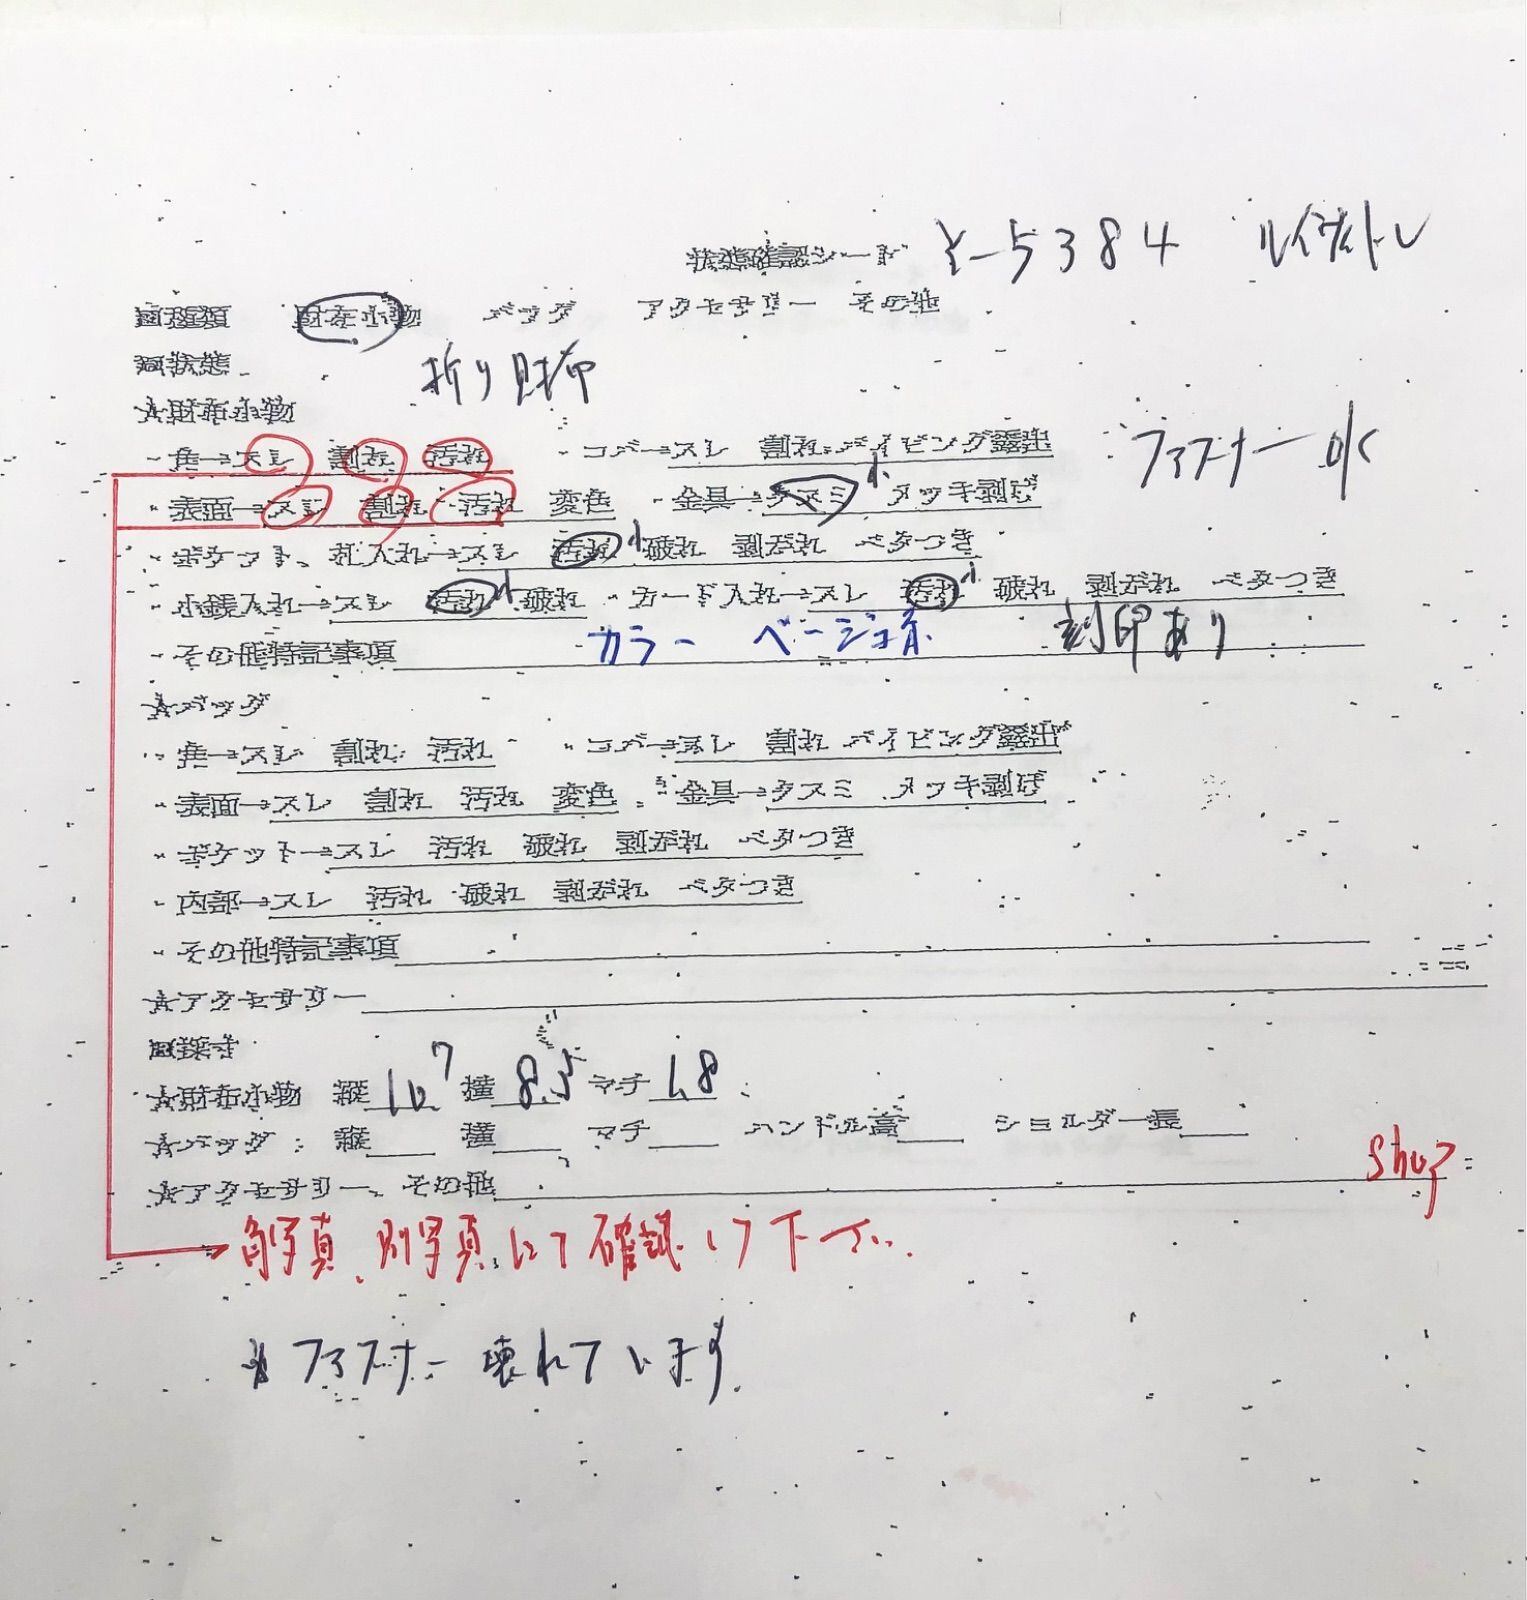 状態確認シート Y-5384 ルイヴィトン
種類 財布小物 バッグ アクセサリー その他
状態 折り財布
☆財布小物
・角→スレ 割れ 汚れ ・コバ→スレ 割れ パイピング露出 ファスナー OK
・表面→スレ 割れ 汚れ 変色 ・金具→クスミ 小 メッキ剥げ
・ポケット、札入れ→スレ 汚れ 小 破れ 剥がれ ベタつき
・小銭入れ→スレ 汚れ 小 破れ ・カード入れ→スレ 汚れ 小 破れ 剥がれ ベタつき
・その他特記事項 カラー ベージュ系 刻印あり
☆バッグ
・角→スレ 割れ 汚れ ・コバ→スレ 割れ パイピング露出
・表面→スレ 割れ 汚れ 変色 ・金具→クスミ メッキ剥げ
・ポケット→スレ 汚れ 破れ 剥がれ ベタつき
・内部→スレ 汚れ 破れ 剥がれ ベタつき
・その他特記事項
☆アクセサリー
採寸
☆財布小物 縦 10.7 横 8.5 マチ 1.8
☆バッグ:縦 横 マチ ハンドル高 ショルダー長
☆アクセサリー、その他
写真、別写真、にて確認して下さい。
ファスナー壊れています。